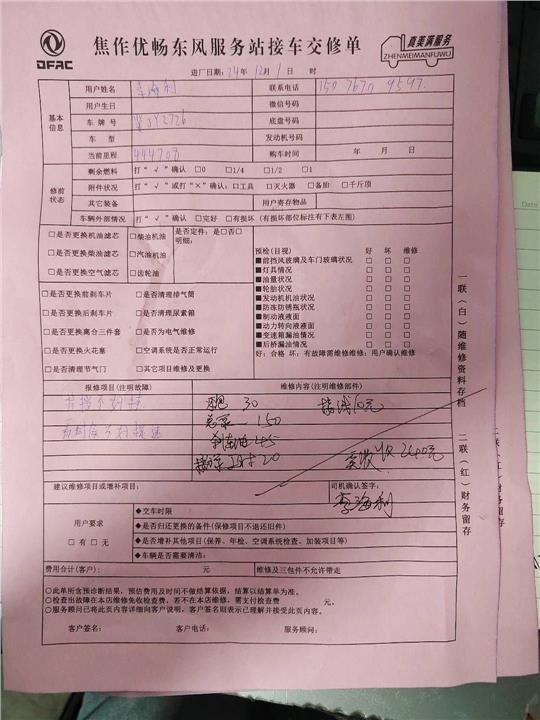 DFAC
焦作优畅东风服务站接车交修单
真美满服务
ZHENMEIMANFUWU
进厂日期：24年 12月 1日 时
基本信息
用户姓名 李海利 联系电话 150 7670 9597
用户生日 微信号码
车牌号 底盘号码
车型 发动机号码
当前里程 444703 购车时间 年 月 日
修前状态
剩余燃料 打“√”确认 □0 □1/4 □1/2 □1
附件状况 打“√”或打“×”确认：□工具 □灭火器 □备胎 □千斤顶
其它装备 用户寄存物品
车辆外部情况 打“√”确认 □完好 □有损坏（有损坏部位标注有下表左图）
□是否更换机油滤芯 □柴油机油 是否定件：是□否□
明细：
□是否更换柴油滤芯 □汽油机油
□是否更换空气滤芯 □齿轮油
预检（目视） 好 坏 维修
■前挡风玻璃及车门玻璃状况 □ □ □
■灯具情况 □ □ □
■油量状况 □ □ □
■轮胎状况 □ □ □
■发动机机油状况 □ □ □
■防冻防锈瓶状况 □ □ □
■制动液液面 □ □ □
■动力转向液液面 □ □ □
■变速箱漏油情况 □ □ □
■后桥漏油情况 □ □ □
好：合格 坏：有故障需维修维修：用户确认维修
□是否更换前刹车片 □是否清理排气筒
□是否更换后刹车片 □是否清理尿素箱
□是否更换离合三件套 □是否为电气维修
□是否更换火花塞 □空调系统是否正常运行
□是否清理节气门 □其它项目维修及更换
报修项目（注明故障） 维修内容（注明维修部件）
30 10元
总泵 150
刹车油 45
20 实收 240元
建议维修项目或增补项目： 司机确认签字：
李海利
用户要求
□有 □无
◆交车时限
◆是否归还更换的备件（保修项目不退还旧件）
◆是否增补其他项目（保养、年检、空调系统检查、加装项目等）
◆车辆是否需要清洁：
费用合计（客户）： 元 维修及三包件不允许带走
◇此单所含预诊断结果，预估费用及时间不做结算依据，结算以结算单为准。
◇检查出故障在本店维修免收检查费，若不在本店维修，需支付检查费 元。
◇服务顾问已将此页内容详细向客户说明，客户签名则表示已理解并接受此页内容。
客户签名： 客户电话： 服务顾问：
一联（白）随维修资料存档
二联（红）财务留存
Date